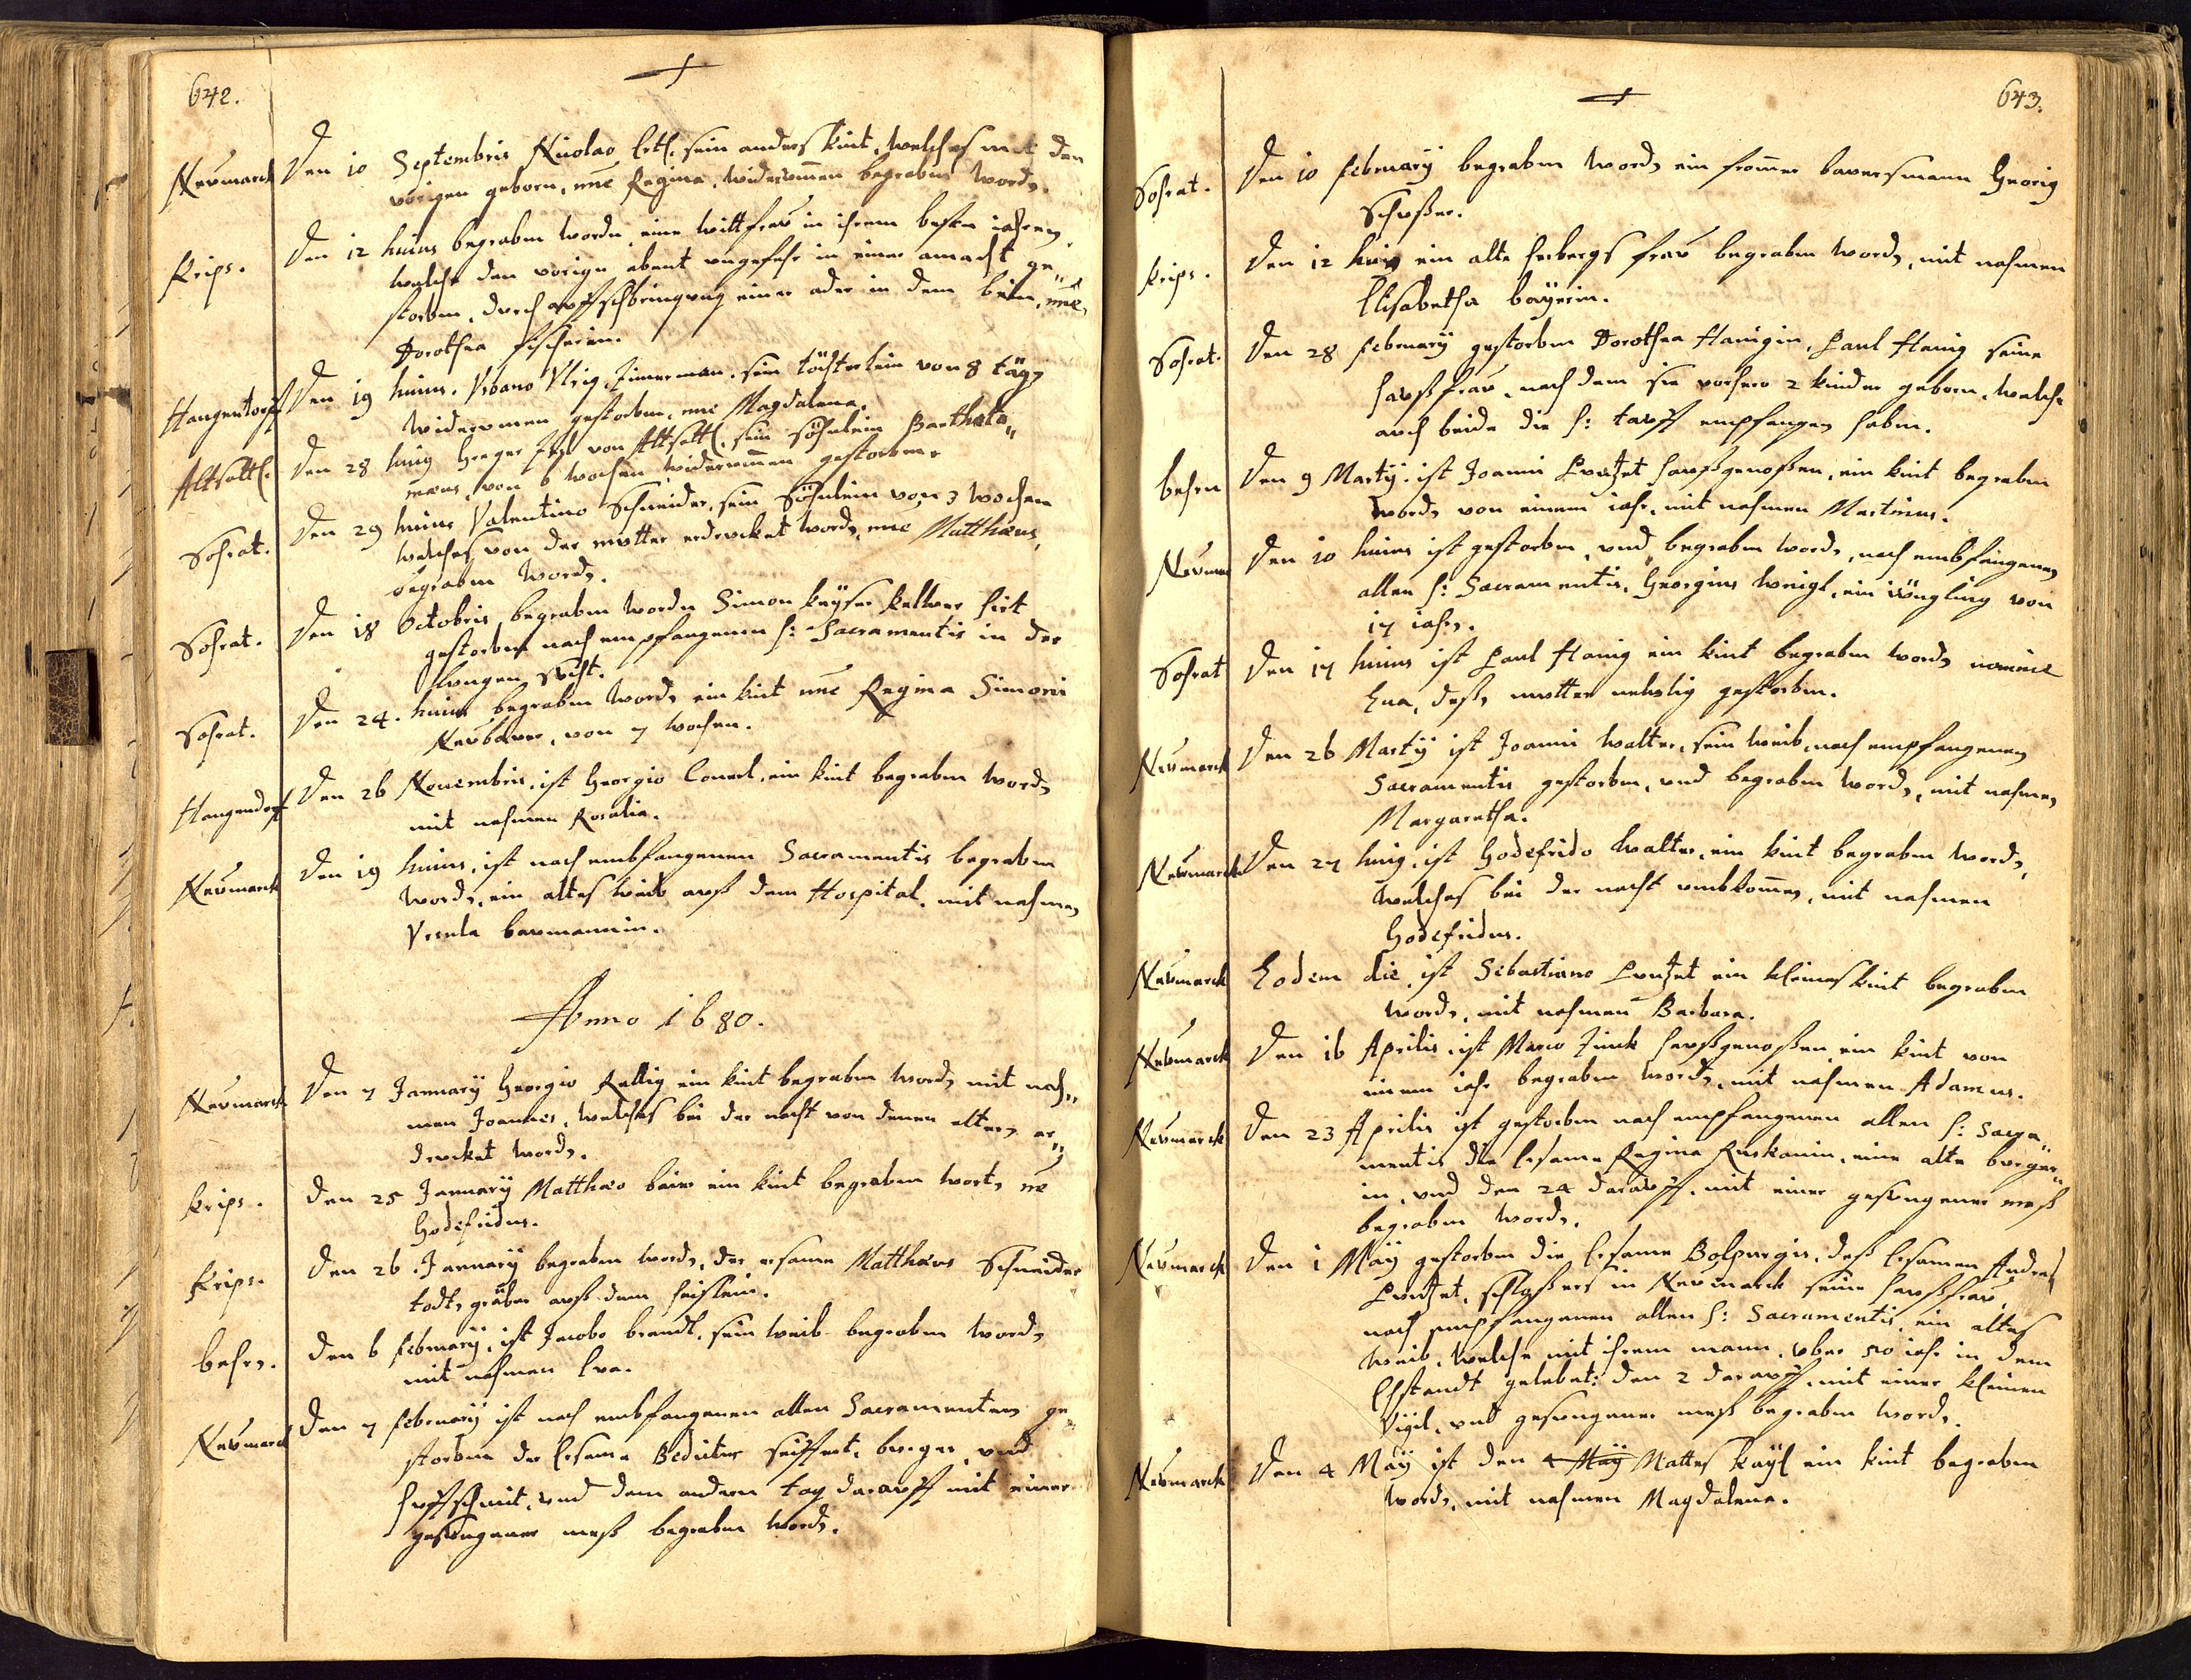 642.
Neumarck Den 10 Septembris Nicolao Ertl. sein anders kint, welches mit den
vorigen geborn, nne Regina, widerumen begraben words.
Krips. Den 12 huius begraben worden eine wittfrau in ihrem besten iahren,
welche den vorign abent ungefehr in einer amacht ge„
storbn, durch auffschbringung einer ader in dem bein, nne,
Dorothea fischerin.
Hangentorff Den 19 huius. Vrbano Vlrig, Zimerman. sein töchterlein von 8 tägy
widerumen gestorben, nne Magdalena.
Altsatl. Den 28 huig Greger von Altsattl. sein söhnlein Bartholo„
mæus, von 6 wochen widerumen gestorben.
Sohrat. Den 29 huius Valentino Schneider, sein söhnlein von 3 wochen
welches von der mutter erdrucket words, nne Matthæus,
begraben words.
Sohrat. Den 18 Octobris, begraben worden Simon Kayser kelber hirt
gestorben nach empfangenen h: Sacramentis in der
lungen sucht.
Sohrat. Den 24. huius begraben words ein kint nne Regina Simoni
Neubauer, von 7 wochen.
Hangendorf Den 26 Nouembris, ist Georgio Conerd, ein kint begraben words
mit nahmen Rosalia.
Neumarck Den 19 huius, ist nach embfangenen Sacramentis begraben
words, ein altes weib auß dem Hospital. mit nahmen
Vrsula baumannin.
Anno 1680.
Neumarck Den 7 January Georgio Rellig ein kint begraben words mit nah„
men Joannes, welches bei der nacht von denen eltern er„
drucket words.
Krips. Den 25 January Matthæo bair ein kint begraben words nne
Godefridus.
Krips. Den 26 January begraben words, der ersame Matthæus Schneider
todts gräber auß dem heislein.
behrn. Den 6 february, ist Jacobo brandl. sein weib begraben words
mit nahmen Eva.
Neumarck Den 7 february ist nach embfangenen allen Sacramenten ge
storben der Ersame Bedictus seiffert, burger, und
huffschmit, und dem andern tag darauff mit einer
gesungener meß begraben words.
643.
Sohrat. Den 10 february begraben words ein fromer bauersmann Georig
Schuster.
Krips. Den 12 huig ein alte herbergs frau begraben words, mit nahmen
Elisabetha bayrin.
Sohrat. Den 28 february gestorben Dorothea Hanigin, Paul Hanig seine
haußfrau, nach dem sie vorhero 2 kinder geborn, welche
auch beide die h: tauff empfangen haben.
behrn Den 9 Marty. ist Joanni Puntzet haußgenoßen, ein kint begraben
words von einem iahr, mit nahmen Martinus.
Neumar Den 10 huius ist gestorben, und begraben words, nach embfangenen
allen h: Sacramentis, Georgius Weigl, ein iüngling von
17 iahrs.
Sohrat Den 17 huius ist Paul Hanig ein kint begraben words nomine
Eua, deßs mutter nehslig gestorben.
Neumarck Den 26 Marty ist Joanni Walter, sein weib, nach empfangenen
Sacramentis gestorben, und begraben words, mit nahmen
Margaretha.
Neumarck Den 27 huig. ist Godefrido Walter, ein kint begraben words,
welches bei der nacht umbkomen, mit nahmen
Godefridus.
Neumarck Eodem die, ist Sebastiano Puntzet ein kleines kint begraben
words, mit nahmen Barbara.
Neumarck Den 16 Aprilis, ist Marco Junck haußgenoßen ein kint von
einem iahr begraben words, mit nahmen Adamus.
Neumarck Den 23 Aprilis ist gestorben nach empfangenen allen h: Sacra„
mentis die ersame Regina Ruskanin, eine alte burger„
in, und den 24 darauff, mit einer gesungener meß
begraben words.
Neumarck Den 1 May gestorben die Ersame Bolpurgis, deß Ersamen Andreæ
Puntzet, schloßers in Neumarck seine haußfrau
nach empfangenen allen h: Sacramentis, ein altes
weib, welche mit ihrem mann, uber 50 iahr in dem
Ehstandt gelebet: den 2 darauff, mit einer kleinen
Vigil, und gesungener meß begraben words.
Neumarck Den 4 May ist den 4 May Mattes Kayl ein kint begraben
words, mit nahmen Magdalena.